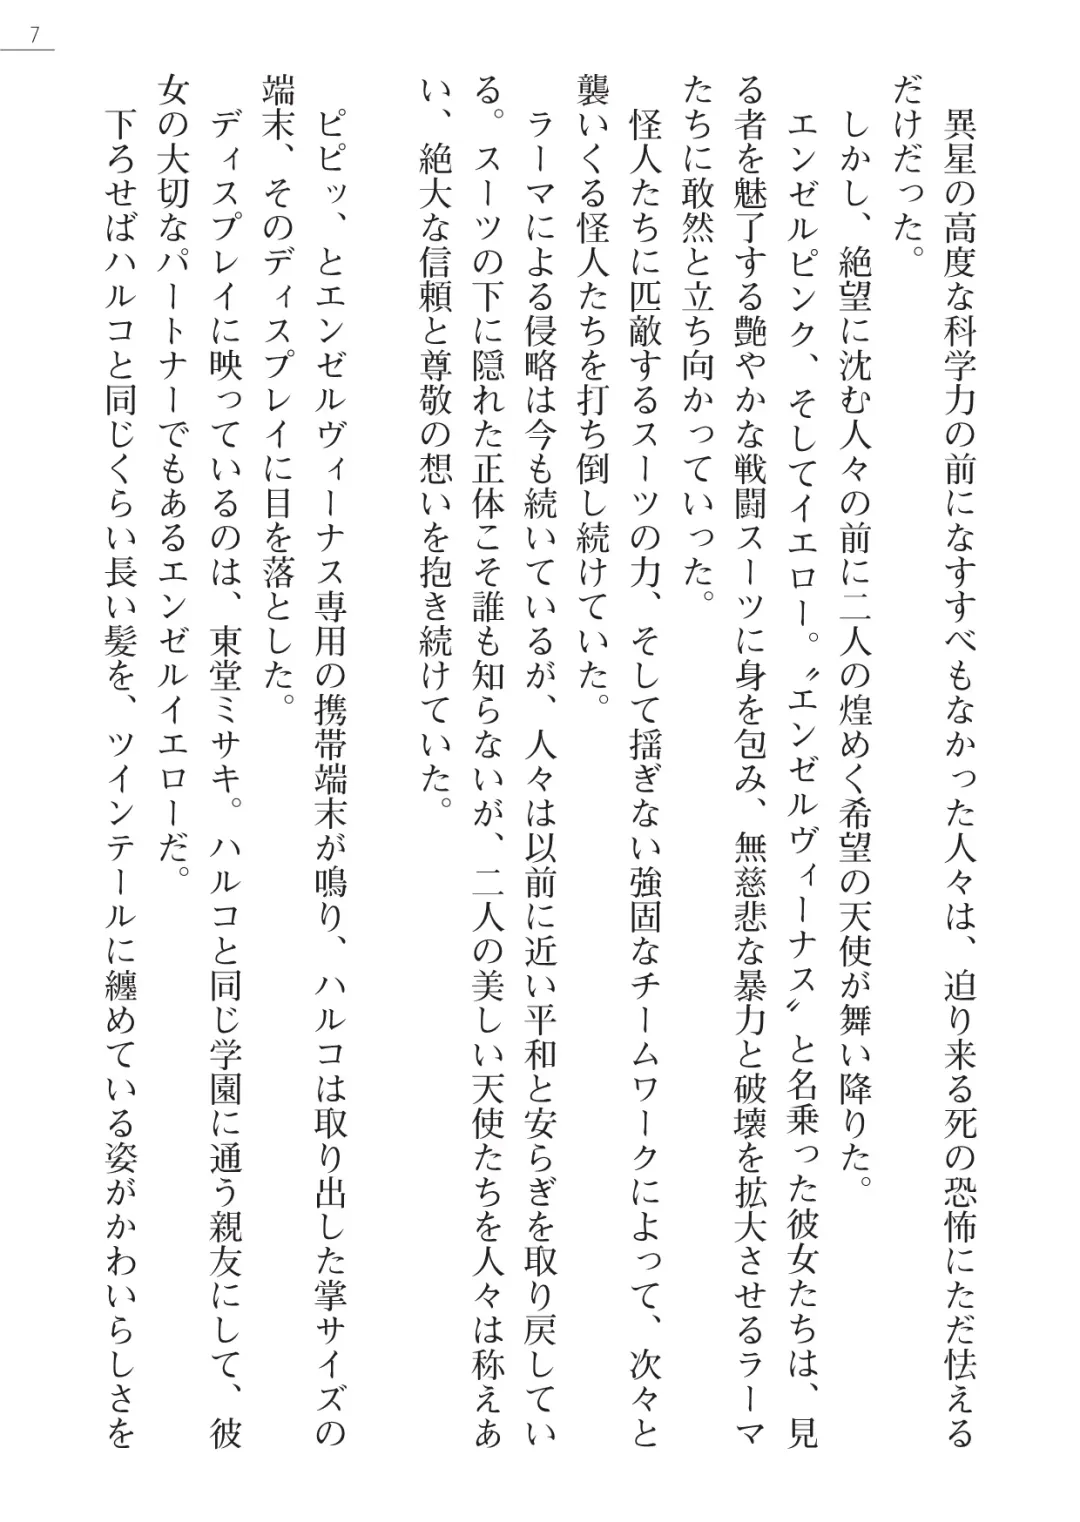 7
異星の高度な科学力の前になすすべもなかった人々は、迫り来る死の恐怖にただ怯える
だけだった。
しかし、絶望に沈む人々の前に二人の煌めく希望の天使が舞い降りた。
エンゼルピンク、そしてイエロー。〝エンゼルヴィーナス〟と名乗った彼女たちは、見
る者を魅了する艶やかな戦闘スーツに身を包み、無慈悲な暴力と破壊を拡大させるラーマ
たちに敢然と立ち向かっていった。
怪人たちに匹敵するスーツの力、そして揺ぎない強固なチームワークによって、次々と
襲いくる怪人たちを打ち倒し続けていた。
ラーマによる侵略は今も続いているが、人々は以前に近い平和と安らぎを取り戻してい
る。スーツの下に隠れた正体こそ誰も知らないが、二人の美しい天使たちを人々は称えあ
い、絶大な信頼と尊敬の想いを抱き続けていた。
ピピッ、とエンゼルヴィーナス専用の携帯端末が鳴り、ハルコは取り出した掌サイズの
端末、そのディスプレイに目を落とした。
ディスプレイに映っているのは、東堂ミサキ。ハルコと同じ学園に通う親友にして、彼
女の大切なパートナーでもあるエンゼルイエローだ。
下ろせばハルコと同じくらい長い髪を、ツインテールに纏めている姿がかわいらしさを